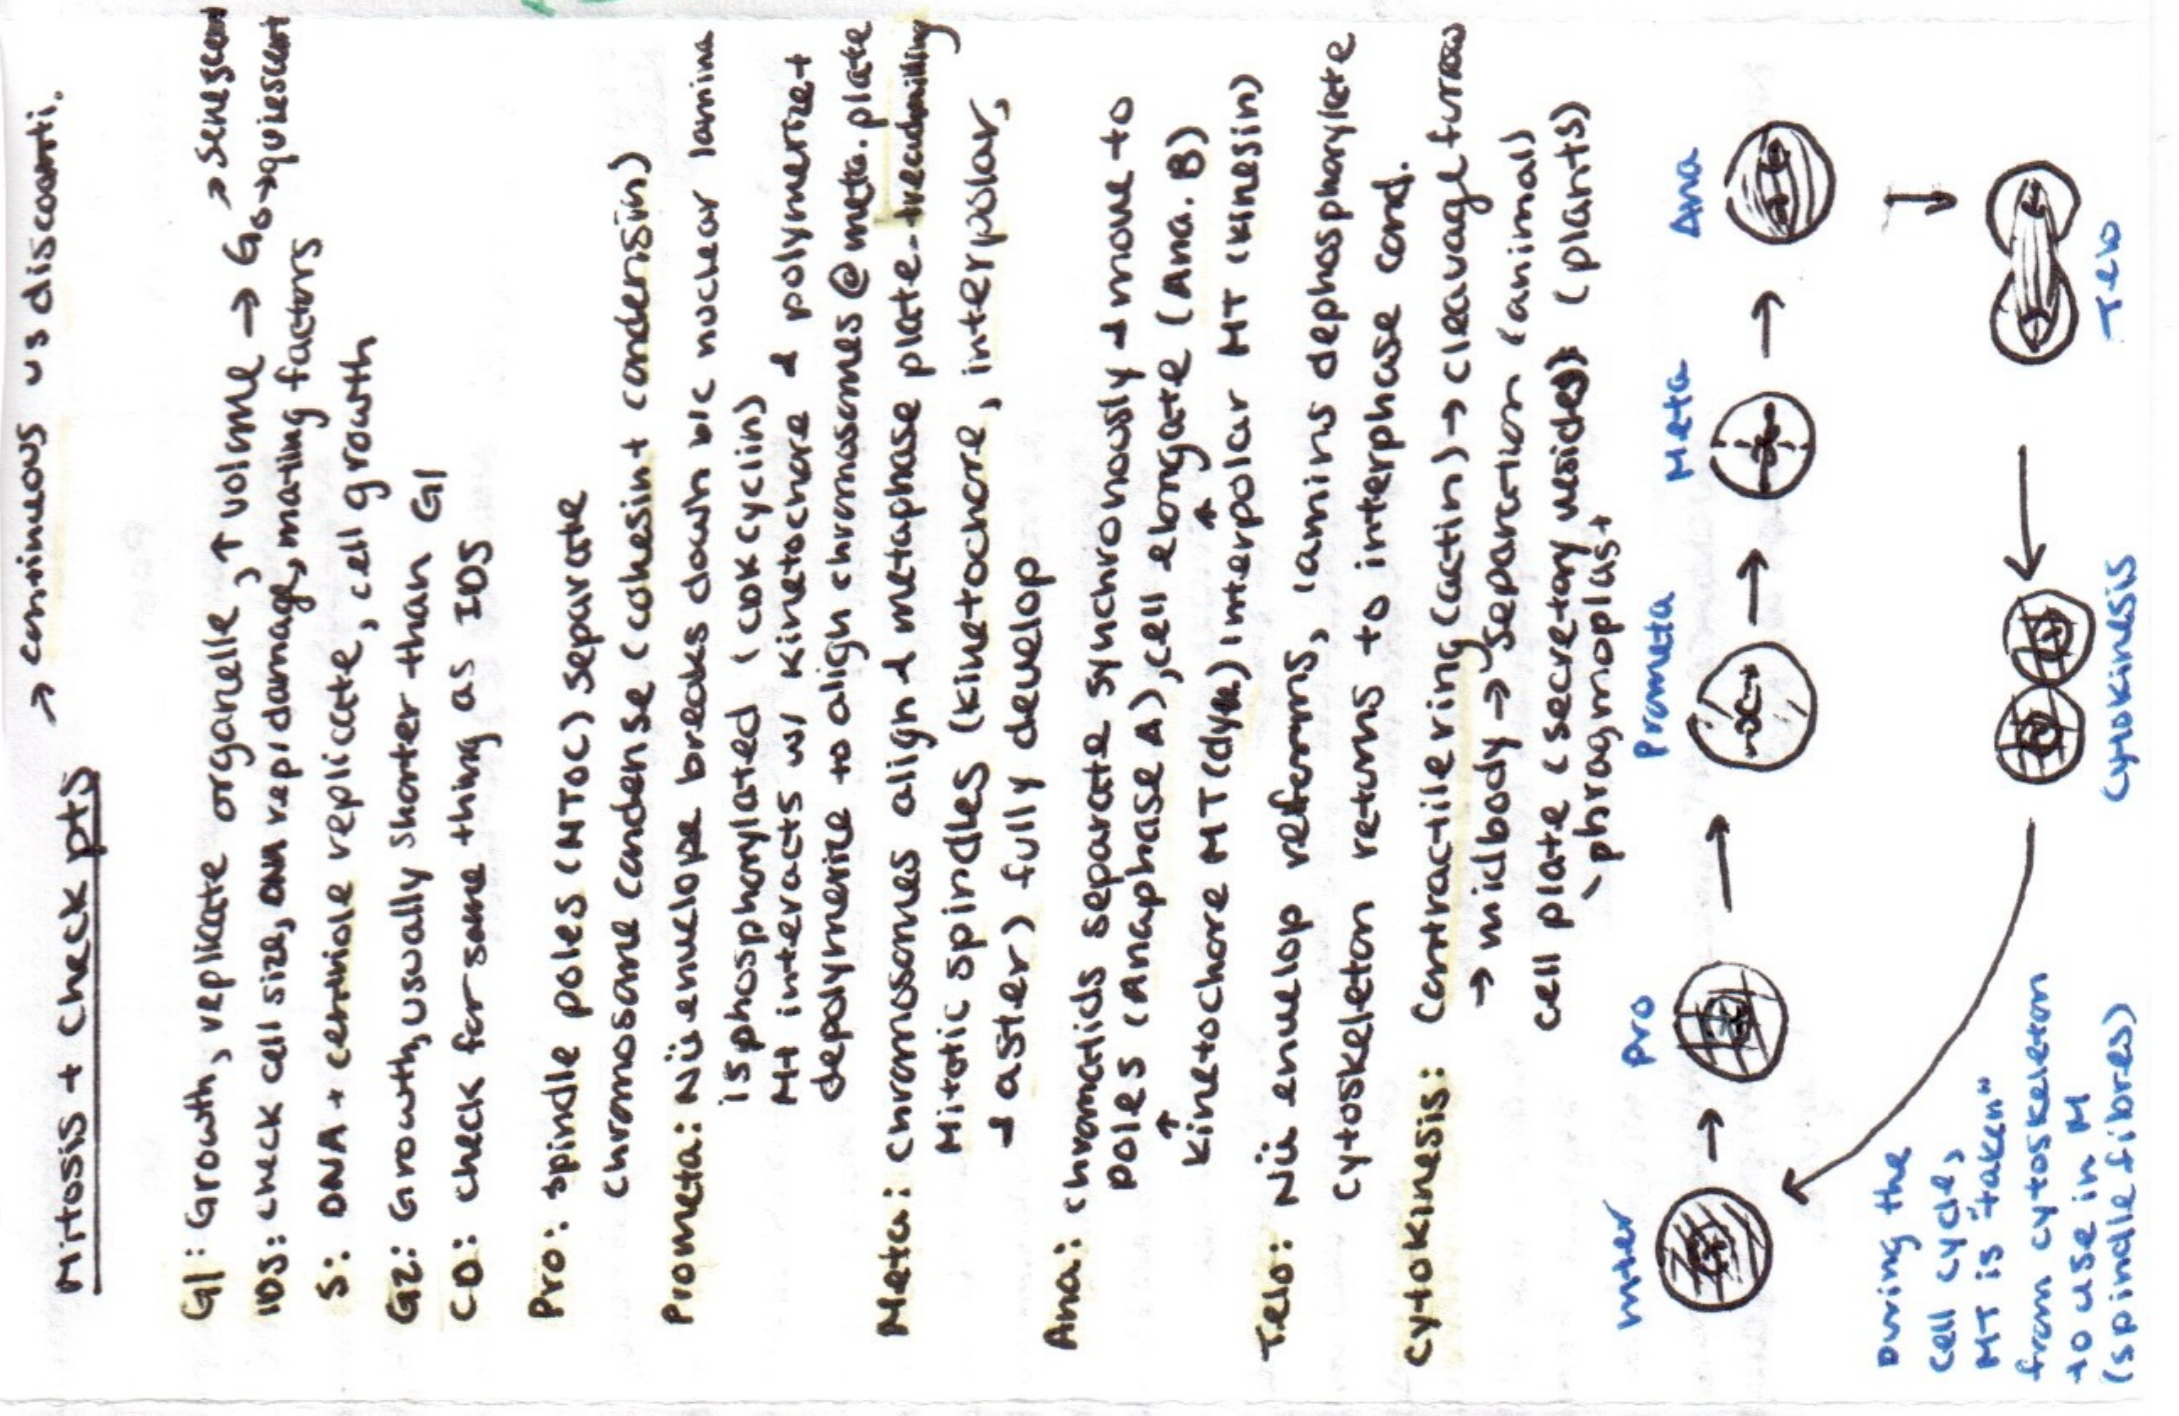 Mitosis + check pts → continuous vs discoonti.
G1: Growth, replicate organelle, ↑ volume → G0 → senescent
→ quiescent
IDS: check cell size, DNA rep/damage, mating factors
S: DNA + centriole replicate, cell growth
G2: Growth, usually shorter than G1
CD: check for same thing as IDS
Pro: spindle poles (MTOC) separate
chromosome condense (cohesin + condensin)
Prometa: Nü envelope breaks down b/c nuclear lamina
is phosphorylated (CDK cyclin)
MT interacts w/ kinetochore & polymerize +
depolymerize to align chromosomes @ meta. plate
Meta: chromosomes align & metaphase plate - treadmilling
Mitotic spindles (kinetochore, interpolar,
& aster) fully develop
Ana: chromatids separate synchronously & move to
poles (Anaphase A), cell elongate (Ana. B)
↑ ↑
kinetochore MT (dyn) interpolar MT (kinesin)
Telo: Nü envelop reforms, lamins dephosphorylate
cytoskeleton returns to interphase cond.
Cytokinesis: Contractile ring (actin) → cleavage furrow
→ midbody → separation (animal)
cell plate (secretory vesicles) (plants)
phragmoplast
Inter → Pro → Prometa → Meta → Ana
Telo
Cytokinesis
During the
cell cycle,
MT is "taken"
from cytoskeleton
to use in M
(spindle fibres)